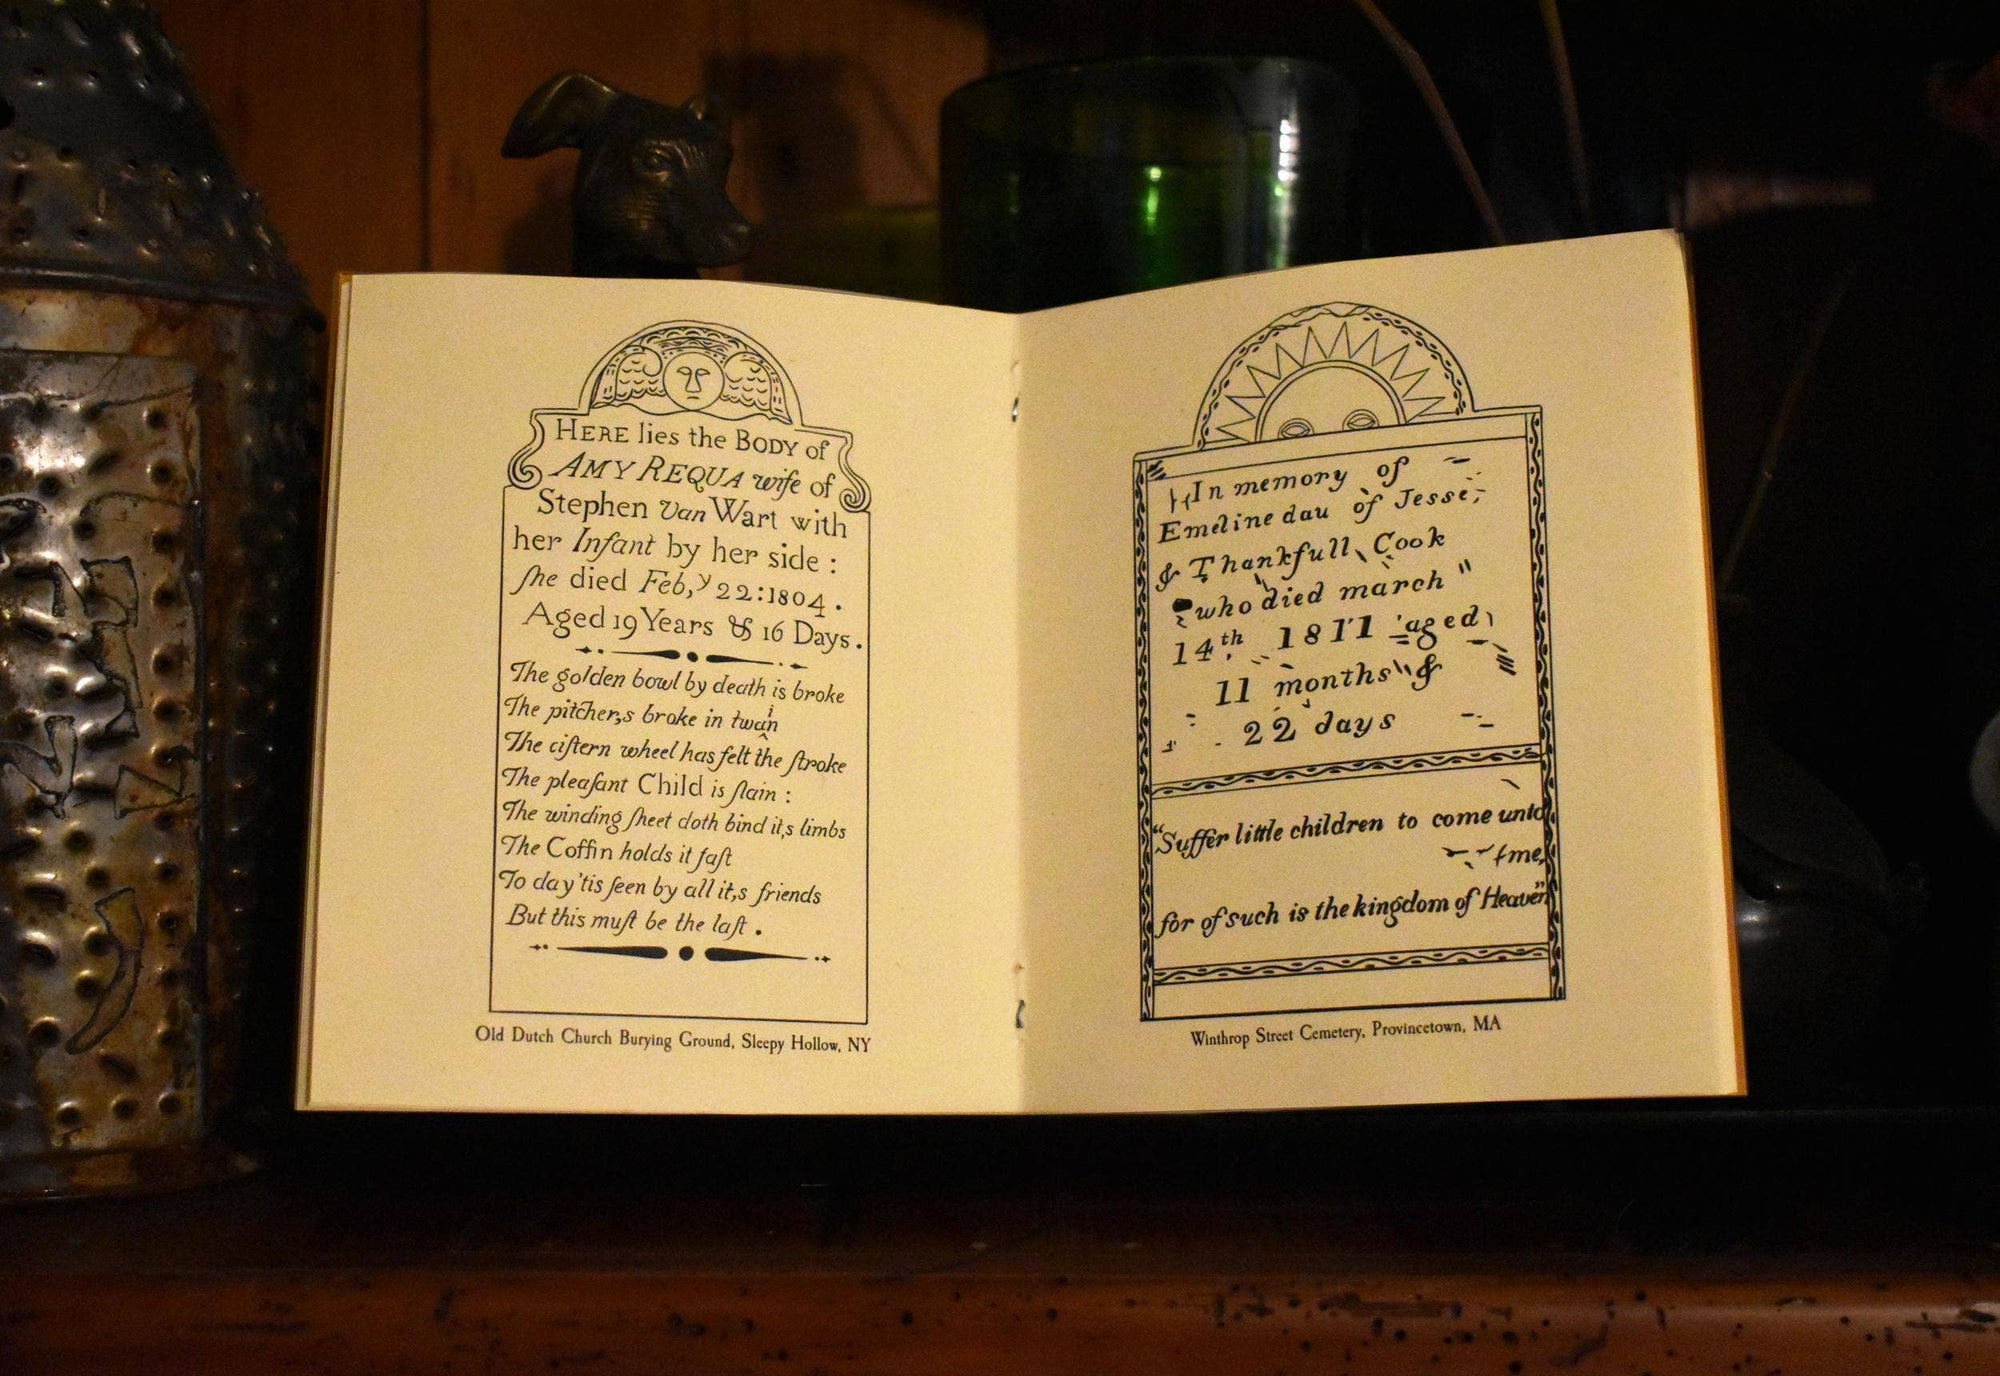 HERE lies the BODY of
AMY REQUA wife of
Stephen Van Wart with
her Infant by her side :
ſhe died Feb,ʸ 22:1804.
Aged 19 Years & 16 Days.
The golden bowl by death is broke
The pitcher,s broke in twain
The ciſtern wheel has felt the ſtroke
The pleaſant Child is ſlain :
The winding ſheet doth bind it,s limbs
The Coffin holds it faſt
To day 'tis ſeen by all it,s friends
But this muſt be the laſt .
Old Dutch Church Burying Ground, Sleepy Hollow, NY
In memory of
Emeline dau of Jesse,
& Thankfull Cook
who died march
14th 1811 aged
11 months &
22 days
"Suffer little children to come unto
me,
for of such is the kingdom of Heaven"
Winthrop Street Cemetery, Provincetown, MA